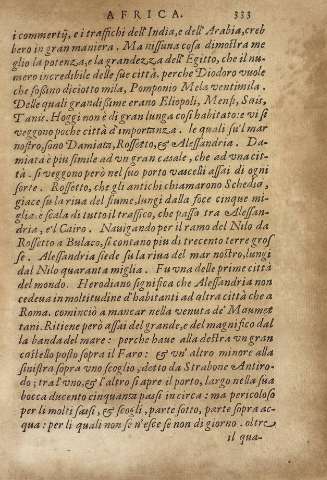 AFRICA. 333
i commertij, e i traffichi dell'India, e dell'Arabia, creb
bero in gran maniera. Ma nissuna cosa dimostra me
glio la potenza, e la grandezza dell'Egitto, che il nu-
mero incredibile delle sue città. perche Diodoro vuole
che fossano diciotto mila, Pomponio Mela ventimila.
Delle quali grandissime erano Eliopoli, Menfi, Sais,
Tanis. Hoggi non è di gran lunga così habitato: e vi si
veggono poche città d'importanza. le quali su'l mar
nostro, sono Damiata, Rossetto, & Alessandria. Da-
miata è piu simile ad vn gran casale, che ad vna cit-
tà. si veggono però nel suo porto vascelli assai di ogni
sorte. Rossetto, che gli antichi chiamarono Schedia,
giace su la riua del fiume, lungi dalla foce cinque mi-
glia, e scala di tutto il traffico, che passa tra Alessan-
dria, e'l Cairo. Nauigando per il ramo del Nilo da
Rossetto a Bulaco, si contano piu di trecento terre gros
se. Alessandria siede su la riua del mar nostro, lungi
dal Nilo quaranta miglia. Fu vna delle prime città
del mondo. Herodiano significa che Alessandria non
cedeua in moltitudine d'habitanti ad altra città che a
Roma. cominciò a mancar nella venuta de' Maumet
tani. Ritiene però assai del grande, e del magnifico dal
la banda del mare: perche haue alla destra vn gran
castello posto sopra il Faro: & vn' altro minore alla
sinistra sopra vno scoglio, detto da Strabone Antiro-
do; tra l'vno, & l'altro si apre il porto, largo nella sua
bocca ducento cinquanta passi in circa: ma pericoloso
per li molti sassi, & scogli, parte sotto, parte sopra ac-
qua: per li quali non se n'esce se non di giorno. oltre
il qua-